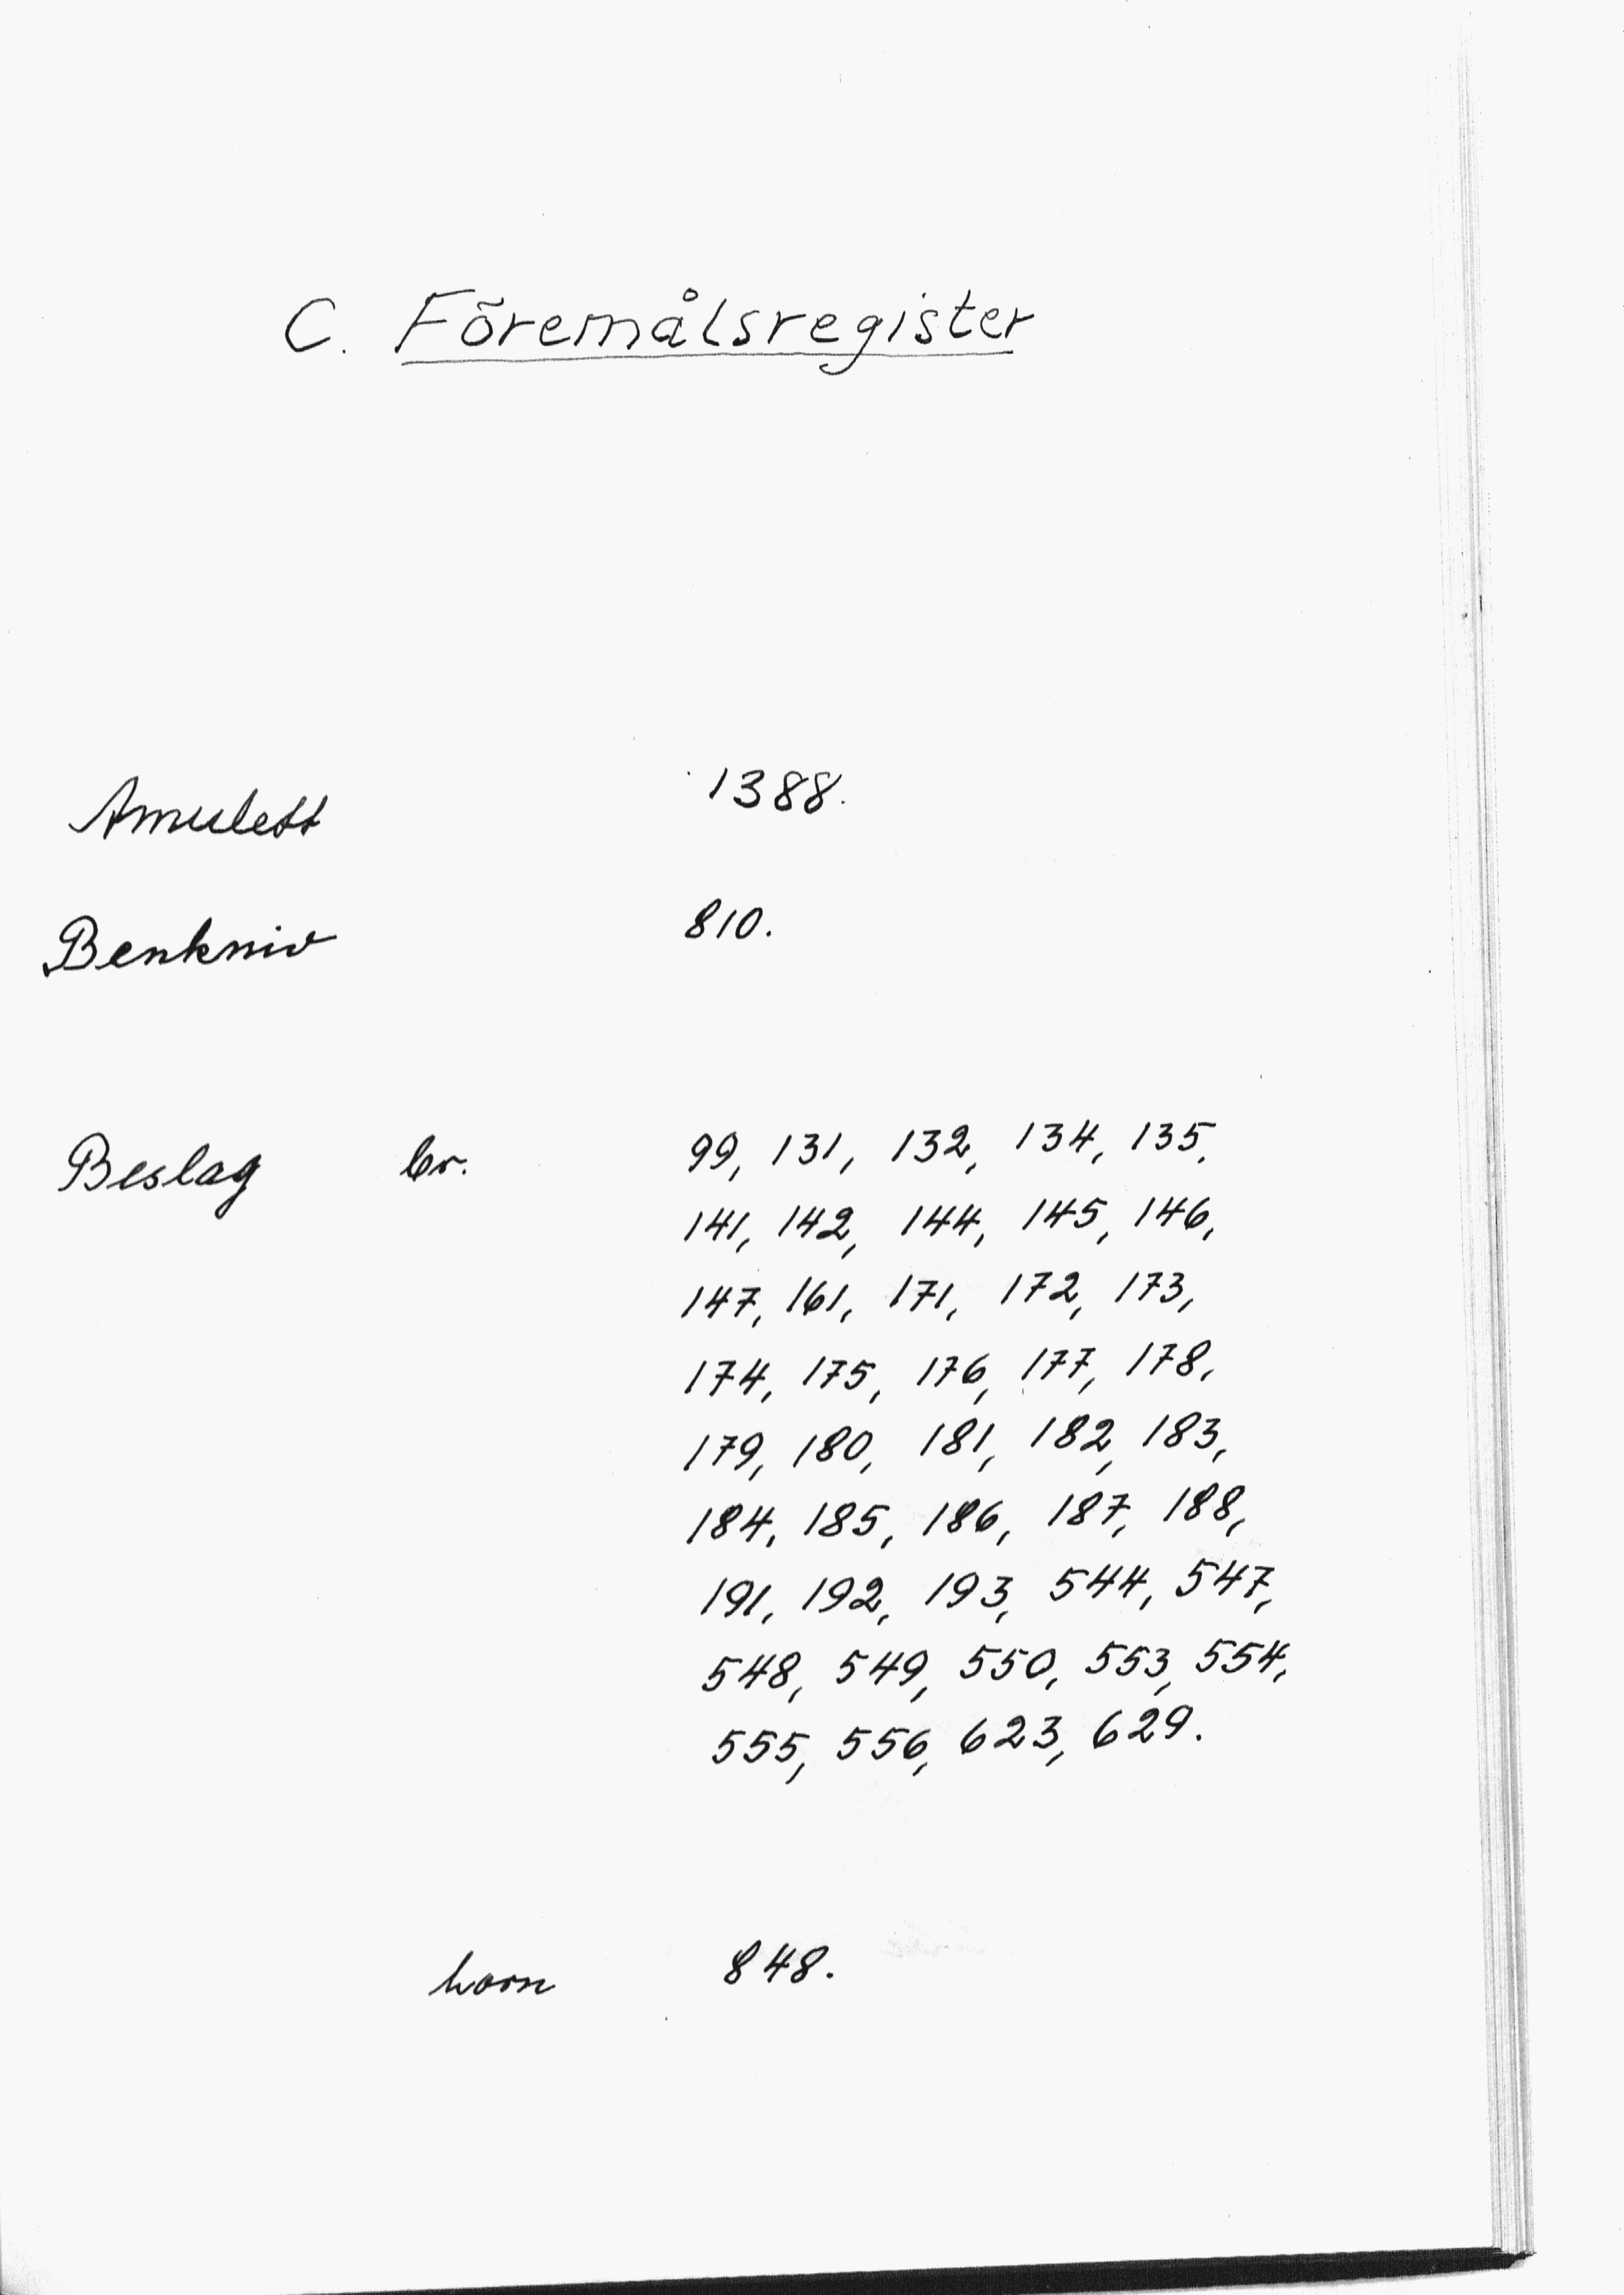 C. Föremålsregister
Amulett 1388.
Benkniv 810.
Beslag br. 99, 131, 132, 134, 135,
141, 142, 144, 145, 146,
147, 161, 171, 172, 173,
174, 175, 176, 177, 178,
179, 180, 181, 182, 183,
184, 185, 186, 187, 188,
191, 192, 193, 544, 547,
548, 549, 550, 553, 554,
555, 556, 623, 629.
horn 848.